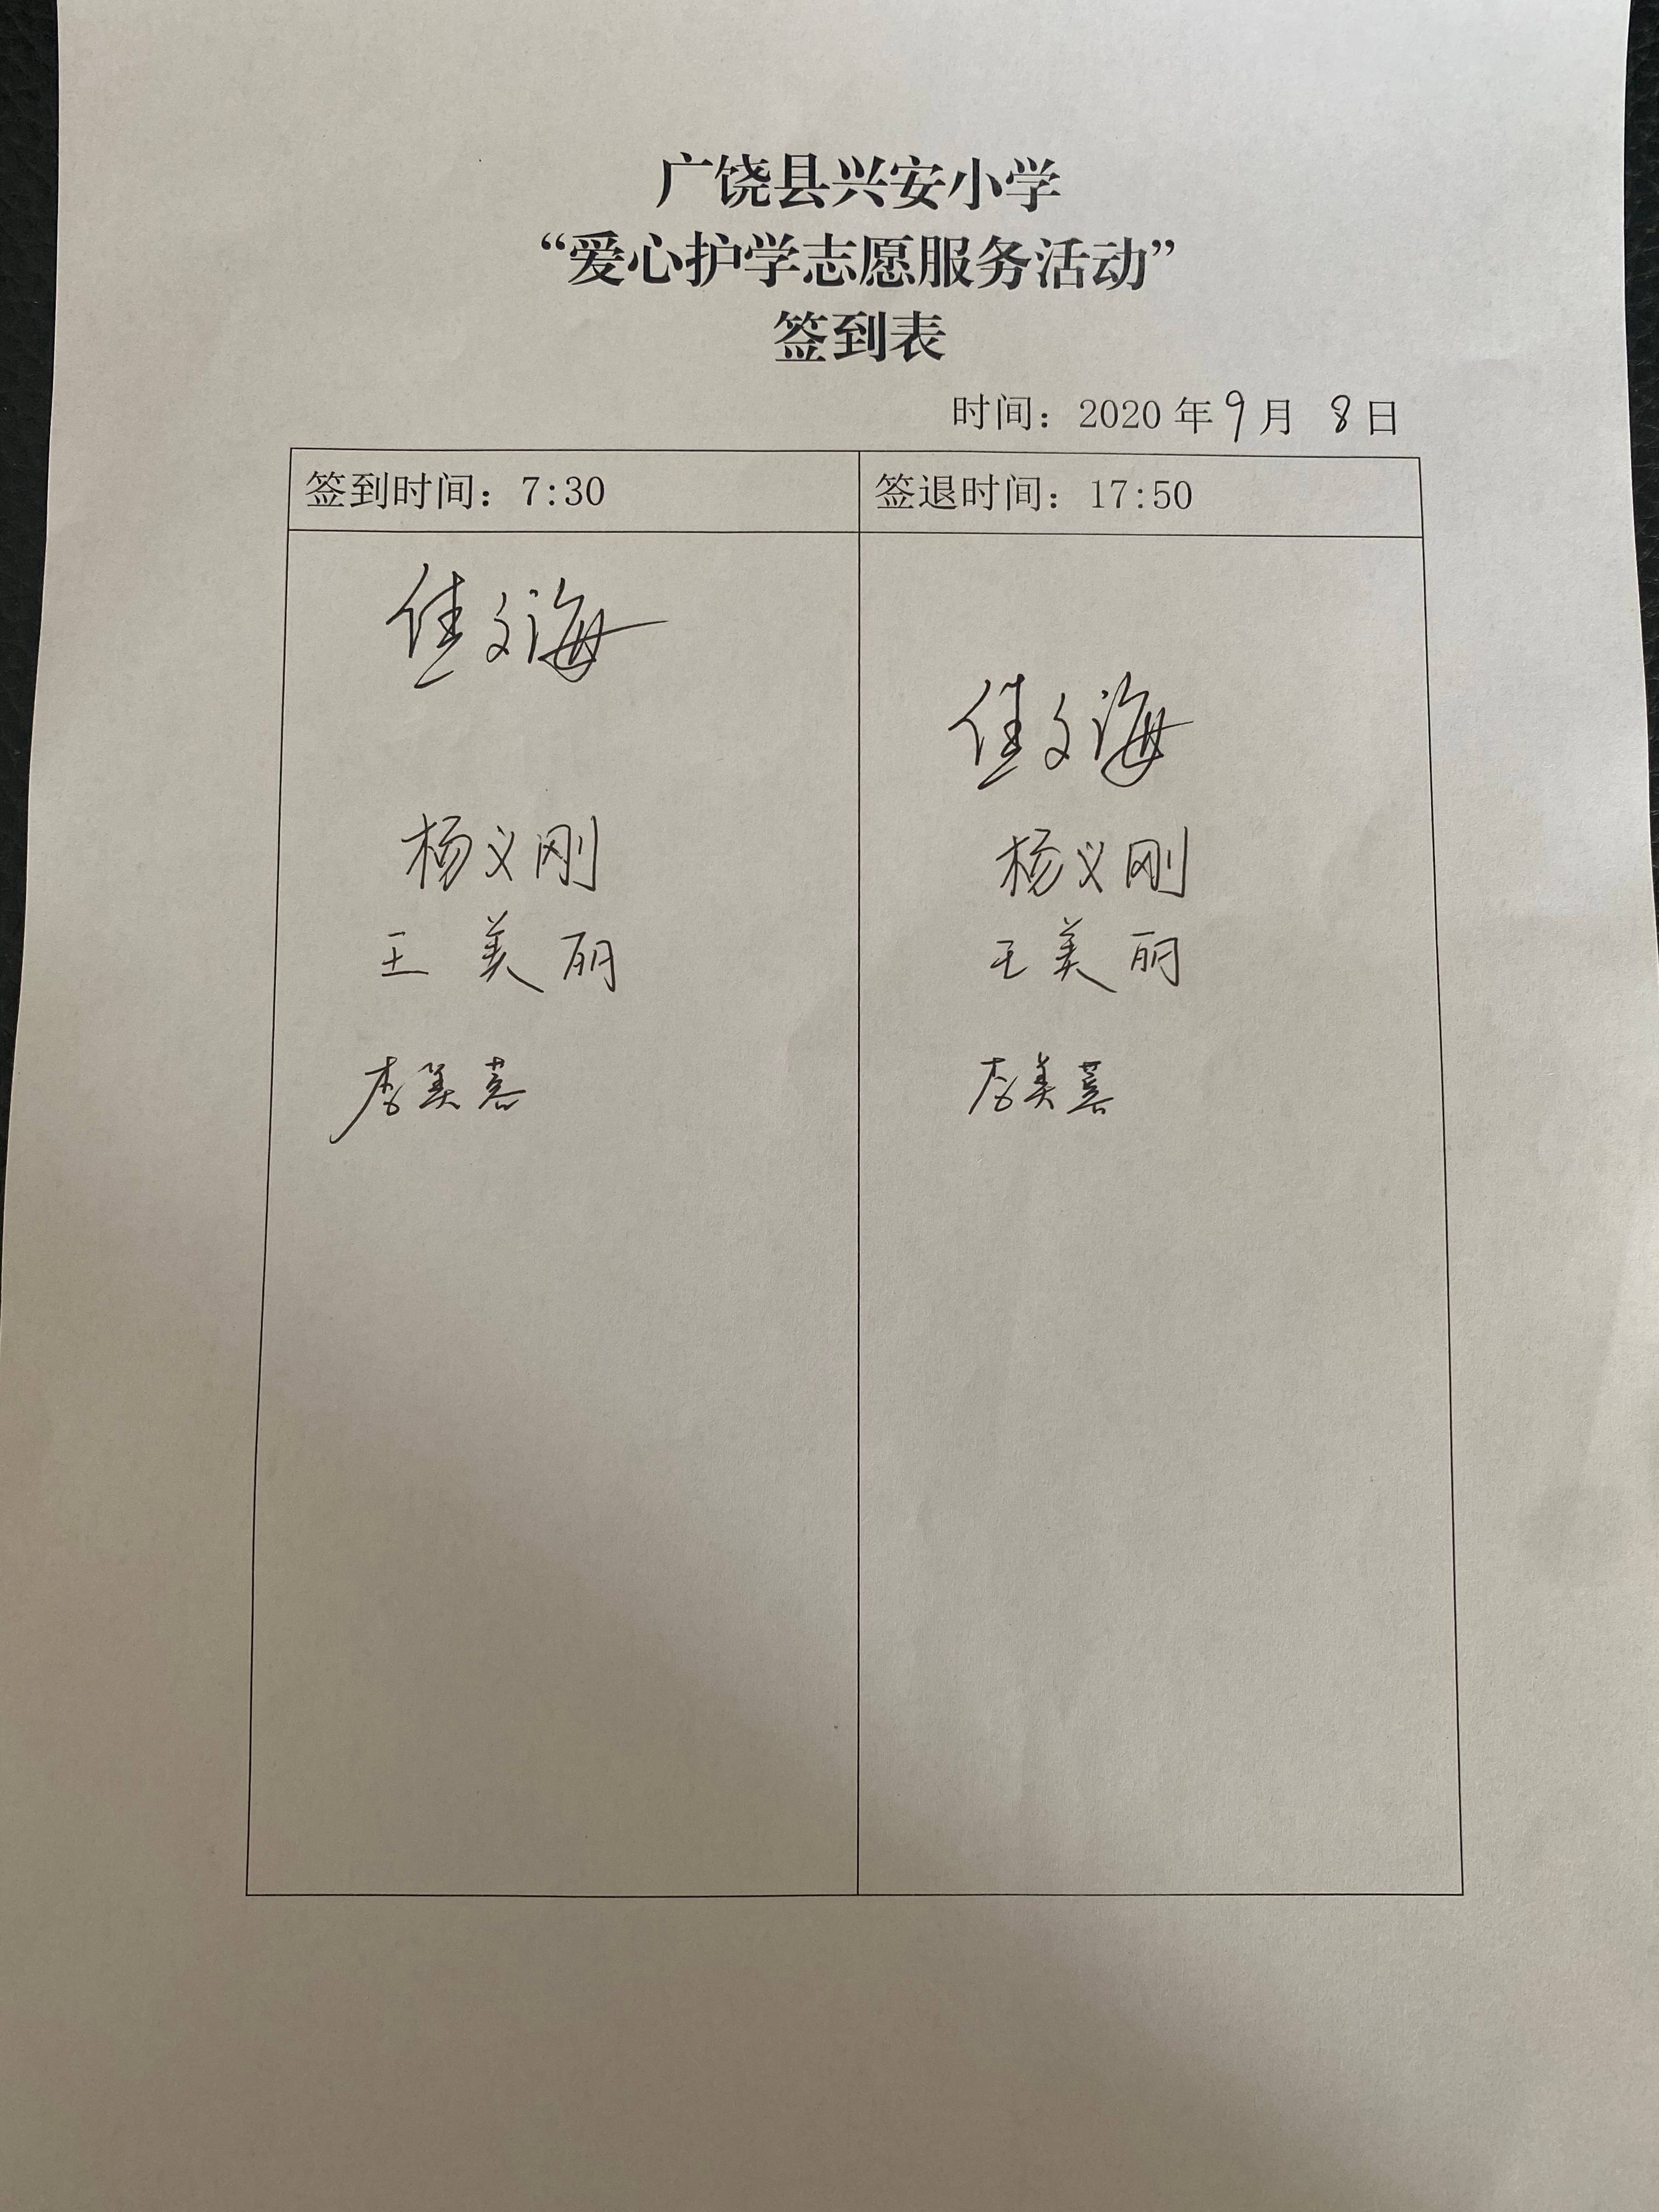 广饶县兴安小学
“爱心护学志愿服务活动”
签到表
时间：2020年9月 8日
签到时间：7:30
签退时间：17:50
佳文海
佳文海
杨义刚
杨义刚
王美丽
王美丽
李美
李美